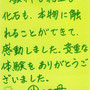 化石も、本物に触
れることができて、
感動しました。貴重な
体験をありがとうご
ざいました。